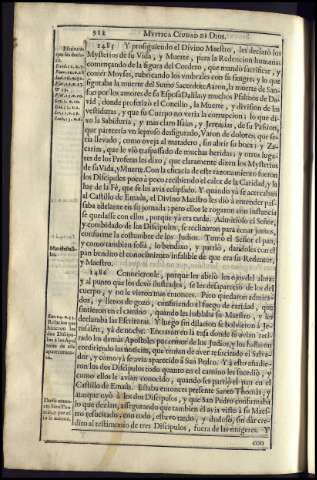 912 MYSTICA CIUDAD DE DIOS.
1485 Y prosiguiendo el Divino Maestro, les declaró los
Mysterios de su Vida, y Muerte, para la Redencion humana:
començando de la figura del Cordero, que mandò sacrificar, y
comer Moyses, rubricando los umbrales con su sangre: y lo que
figuraba la muerte del Sumo Sacerdote Aaron, la muerte de San-
son por los amores de su Esposa Dalila: y muchos Psalmos de Da-
vid; donde profetizò el Concilio, la Muerte, y division de las
vestiduras, y que su Cuerpo no vería la corrupcion: lo que di-
xo la Sabiduria, y mas claro Isaias, y Jeremias, de su Passion,
que pareceria un leproso desfigurado, Varon de dolores; que se-
ria llevado, como oveja al matadero, sin abrir su boca: y Za-
carias, que le viò traspassado de muchas heridas: y otros luga-
res de los Profetas les dixo, que claramente dizen los Mysterios
de su Vida, y Muerte. Con la eficacia de este razonamiento fueron
los Discipulos poco à poco recibiendo el calor de la Caridad, y la
luz de la Fé, que se les avia eclipsado. Y quando yà se acercaban
al Castillo de Emaùs, el Divino Maestro les diò à entender pas-
saba adelante en su jornada: pero ellos le rogaron con instancia
se quedasse con ellos, porque yà era tarde. Admitiòlo el Señor,
y combidado de los Discipulos, se reclinaron para cenar juntos,
conforme la costumbre de los Judios. Tomò el Señor el pan,
y como tambien solia, lo bendixo, y partiò, dandoles con el
pan bendito el conocimiento infalible de que era su Redentor,
y Maestro.
1486 Conocieronle, porque les abriò los ojos del alma:
y al punto que los dexò ilustrados, se les desapareciò de los del
cuerpo, y no le vieron mas entonces. Pero quedaron admira-
dos, y llenos de gozo, confiriendo el fuego de caridad, que
sintieron en el camino, quando les hablaba su Maestro, y les
declaraba las Escrituras. Y luego sin dilacion se bolvieron à Je-
rusalèn, yà de noche. Entraron en la casa donde se avian reti-
rado los demàs Apostoles por temor de los Judios, y los hallaron
confiriendo las noticias, que tenian de aver resucitado el Salva-
dor, y como yà se avia aparecido à San Pedro. Y à esto añadie-
ron los dos Discipulos todo quanto en el camino les sucediò, y
como ellos le avian conocido, quando les partiò el pan en el
Castillo de Emaùs. Estaba entonces presente Santo Thomàs, y
aunque oyò à los dos Discipulos, y que San Pedro confirmaba
lo que dezian, assegurando que tambien èl avia visto à su Maes-
tro resucitado; con todo, estuvo tardo, y dudoso, sin dar cre-
dito al testimonio de tres Discipulos, fuera de las mugeres. Y